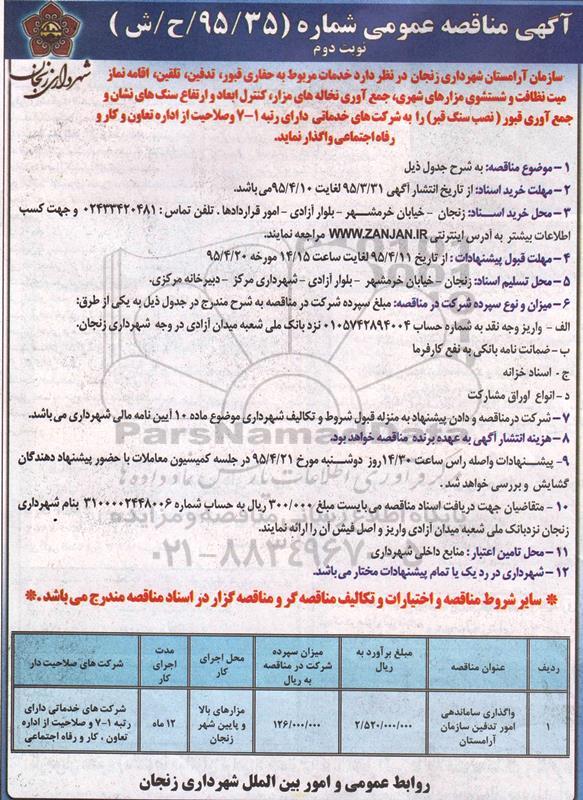 آگهی مناقصه عمومی شماره (۹۵/۳۵/ح/ش)
نوبت دوم
شهرداری زنجان
سازمان آرامستان شهرداری زنجان در نظر دارد خدمات مربوط به حفاری قبور، تدفین، تلقین، اقامه نماز
میت نظافت و شستشوی مزارهای شهری، جمع آوری نخاله های مزار، کنترل ابعاد و ارتفاع سنگ های نشان و
جمع آوری قبور (نصب سنگ قبر) را به شرکت های خدماتی دارای رتبه ۱-۷ وصلاحیت از اداره تعاون و کار و
رفاه اجتماعی واگذار نماید.
۱- موضوع مناقصه: به شرح جدول ذیل
۲- مهلت خرید اسناد: از تاریخ انتشار آگهی ۹۵/۳/۳۱ لغایت ۹۵/۴/۱۰ می باشد.
۳- محل خرید اسناد: زنجان - خیابان خرمشهر - بلوار آزادی - امور قراردادها. تلفن تماس: ۰۲۴۳۳۴۲۰۴۸۱ و جهت کسب
اطلاعات بیشتر به آدرس اینترنتی WWW.ZANJAN.IR مراجعه نمایند.
۴- مهلت قبول پیشنهادات: از تاریخ ۹۵/۴/۱۱ لغایت ساعت ۱۴/۱۵ مورخه ۹۵/۴/۲۰
۵- محل تسلیم اسناد: زنجان - خیابان خرمشهر - بلوار آزادی - شهرداری مرکز - دبیرخانه مرکزی.
۶- میزان و نوع سپرده شرکت در مناقصه: مبلغ سپرده شرکت در مناقصه به شرح مندرج در جدول ذیل به یکی از طرق:
الف - واریز وجه نقد به شماره حساب ۰۱۰۵۷۴۲۸۹۴۰۰۴ نزد بانک ملی شعبه میدان آزادی در وجه شهرداری زنجان.
ب- ضمانت نامه بانکی به نفع کارفرما
ج- اسناد خزانه
د- انواع اوراق مشارکت
۷- شرکت در مناقصه و دادن پیشنهاد به منزله قبول شروط و تکالیف شهرداری موضوع ماده ۱۰ آیین نامه مالی شهرداری می باشد.
۸- هزینه انتشار آگهی به عهده برنده مناقصه خواهد بود.
۹- پیشنهادات واصله راس ساعت ۱۴/۳۰ روز دوشنبه مورخ ۹۵/۴/۲۱ در جلسه کمیسیون معاملات با حضور پیشنهاد دهندگان
گشایش و بررسی خواهد شد.
۱۰- متقاضیان جهت دریافت اسناد مناقصه می بایست مبلغ ۳۰۰/۰۰۰ ریال به حساب شماره ۳۱۰۰۰۰۲۴۴۸۰۰۶ بنام شهرداری
زنجان نزدبانک ملی شعبه میدان آزادی واریز و اصل فیش آن را ارائه نمایند.
۱۱- محل تامین اعتبار: منابع داخلی شهرداری
۱۲- شهرداری در رد یک یا تمام پیشنهادات مختار می باشد.
* سایر شروط مناقصه و اختیارات و تکالیف مناقصه گر و مناقصه گزار در اسناد مناقصه مندرج می باشد. *
ردیف عنوان مناقصه مبلغ برآورد به ریال میزان سپرده شرکت در مناقصه به ریال محل اجرای کار مدت اجرای کار شرکت های صلاحیت دار
۱ واگذاری ساماندهی امور تدفین سازمان آرامستان ۲/۵۲۰/۰۰۰/۰۰۰ ۱۲۶/۰۰۰/۰۰۰ مزارهای بالا و پایین شهر زنجان ۱۲ ماه شرکت های خدماتی دارای رتبه ۱-۷ و صلاحیت از اداره تعاون، کار و رفاه اجتماعی
روابط عمومی و امور بین الملل شهرداری زنجان
ParsNamadData
۰۲۱-۸۸۳۴۹۶۷۰